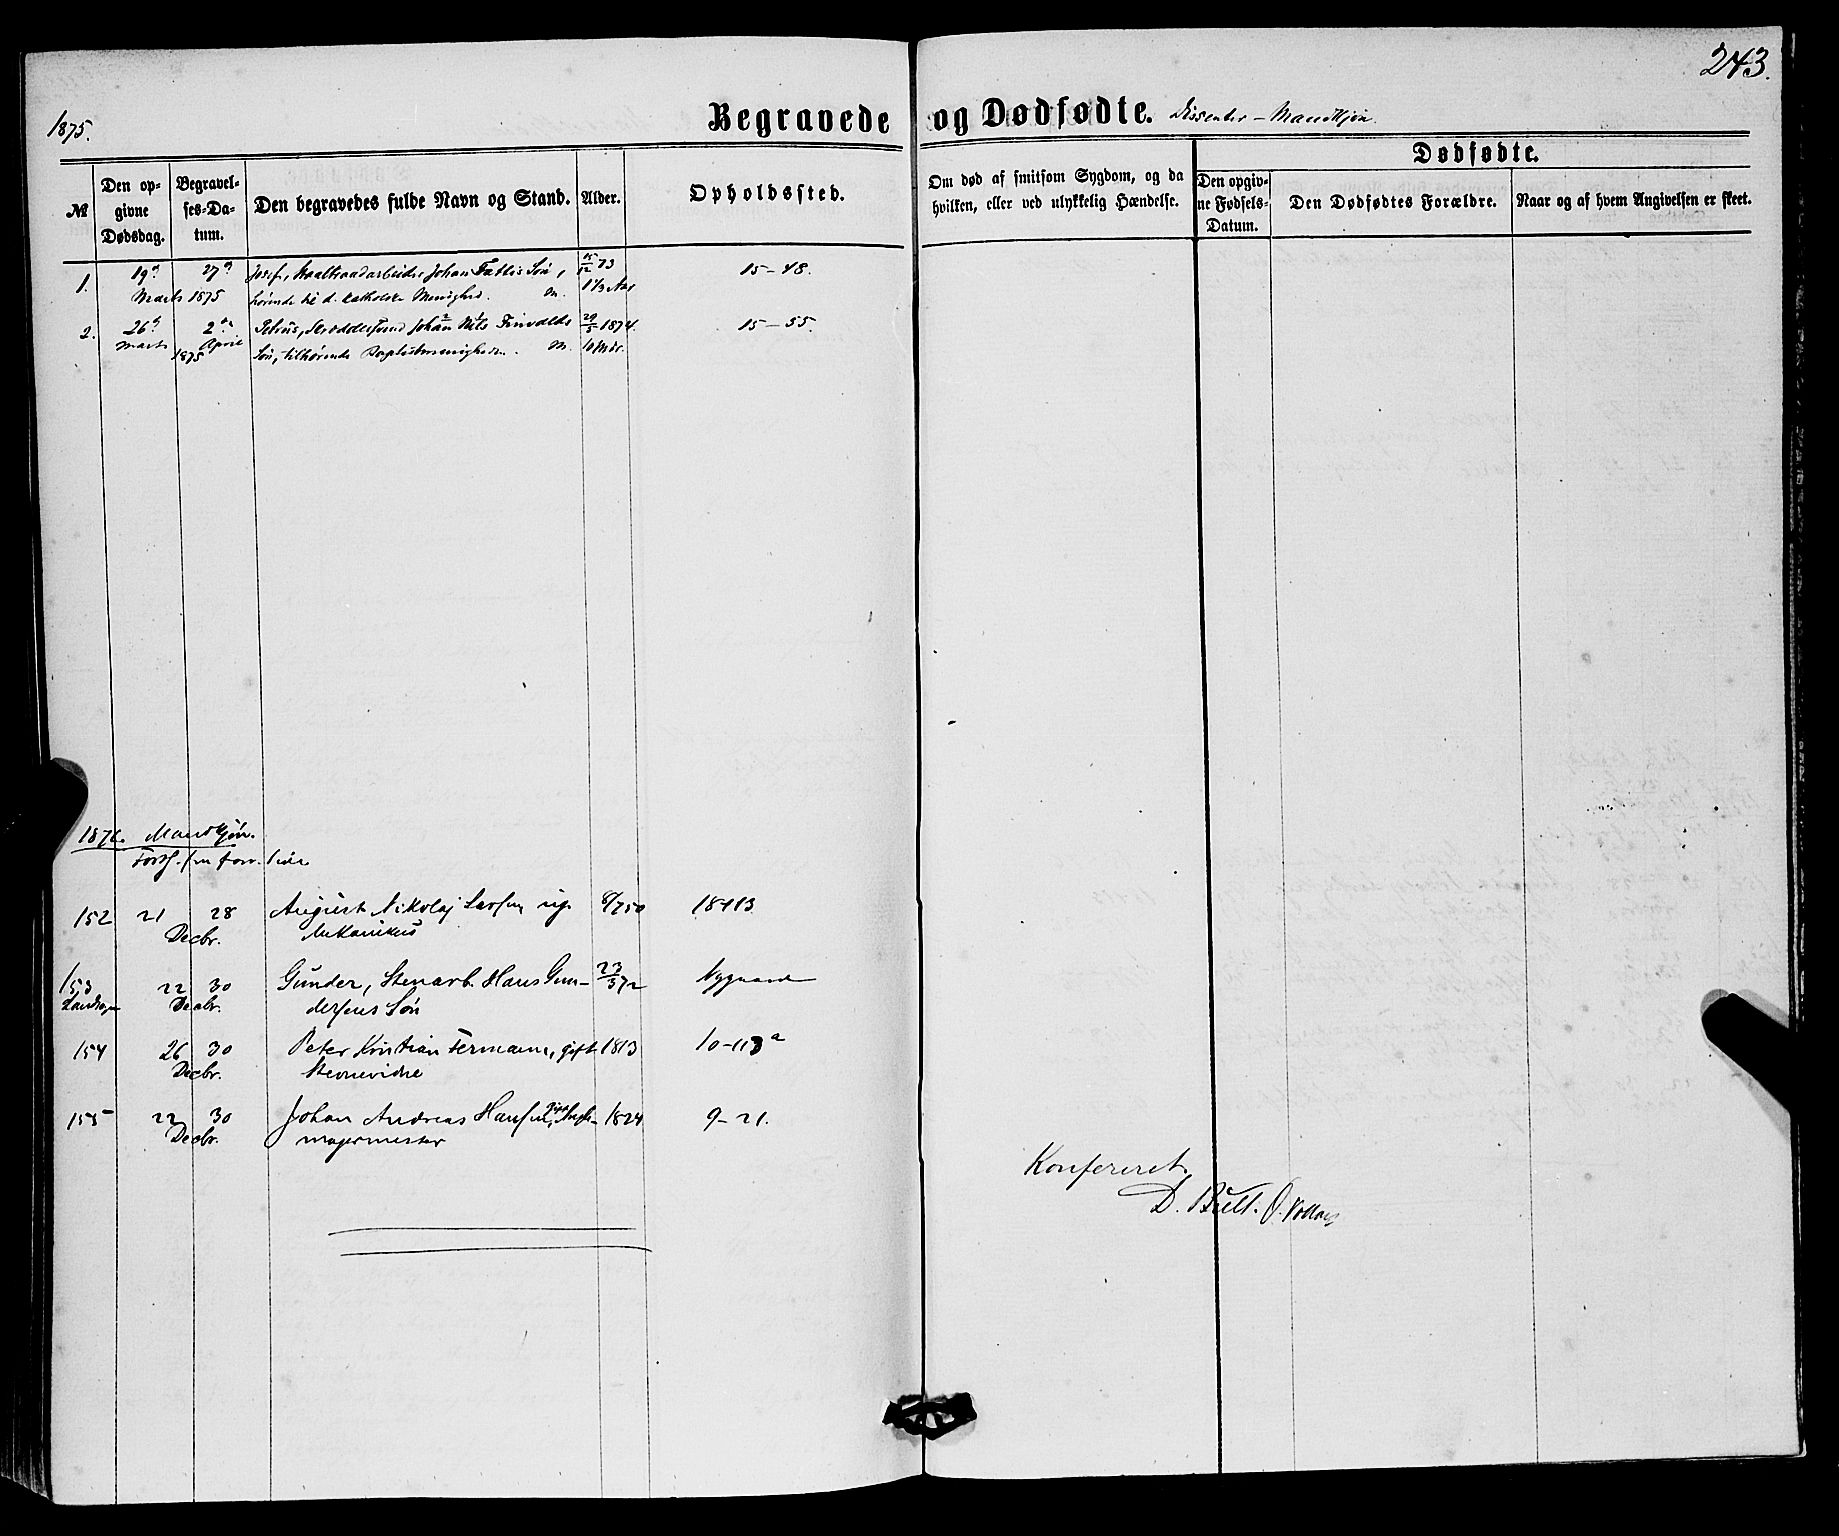 243.
1875.
Begravede og Dødfødte. Dissenter – Mandkjøn.
№
Den opgivne Dødsdag.
Begravelses-Datum.
Den begravedes fulde Navn og Stand.
Alder.
Opholdssted.
Om død af smitsom Sygdom, og da hvilken, eller ved ulykkelig Hændelse.
Dødfødte.
Den opgivne Fødsels-Datum.
Den Dødfødtes Forældre.
Naar og af hvem Angivelsen er skeet.
1. 19de 27de Josef, Johan Søn, 15/12 73 15–48.
Marts 1875 hørende til d. katholske Menighed. M. 1 1/3 Aar
2. 26de 2den Petrus, Johan Nils Søn 29/5 1874. 15–55.
Marts April
1875 Søn, tilhørende M. 10 Mdr.
1876. Mandkjøn.
Forts. fra forr. Side
152 21 28 August Nikolaj Larsen ug. 8/7 50 18-113
Decbr. Mekanikus
153 22 30 Gunder, Stenarb. Hans Gun- 23/5 72 Nygaard
Landsogn Decbr. dersens Søn
154 26 30 Peter Kristian Fermann, gift 1813 10–113a
Decbr.
155 22 30 Johan Andreas Hansen, gift 1824 9–21.
Decbr. magermester
Konfereret
D. Bull. O.